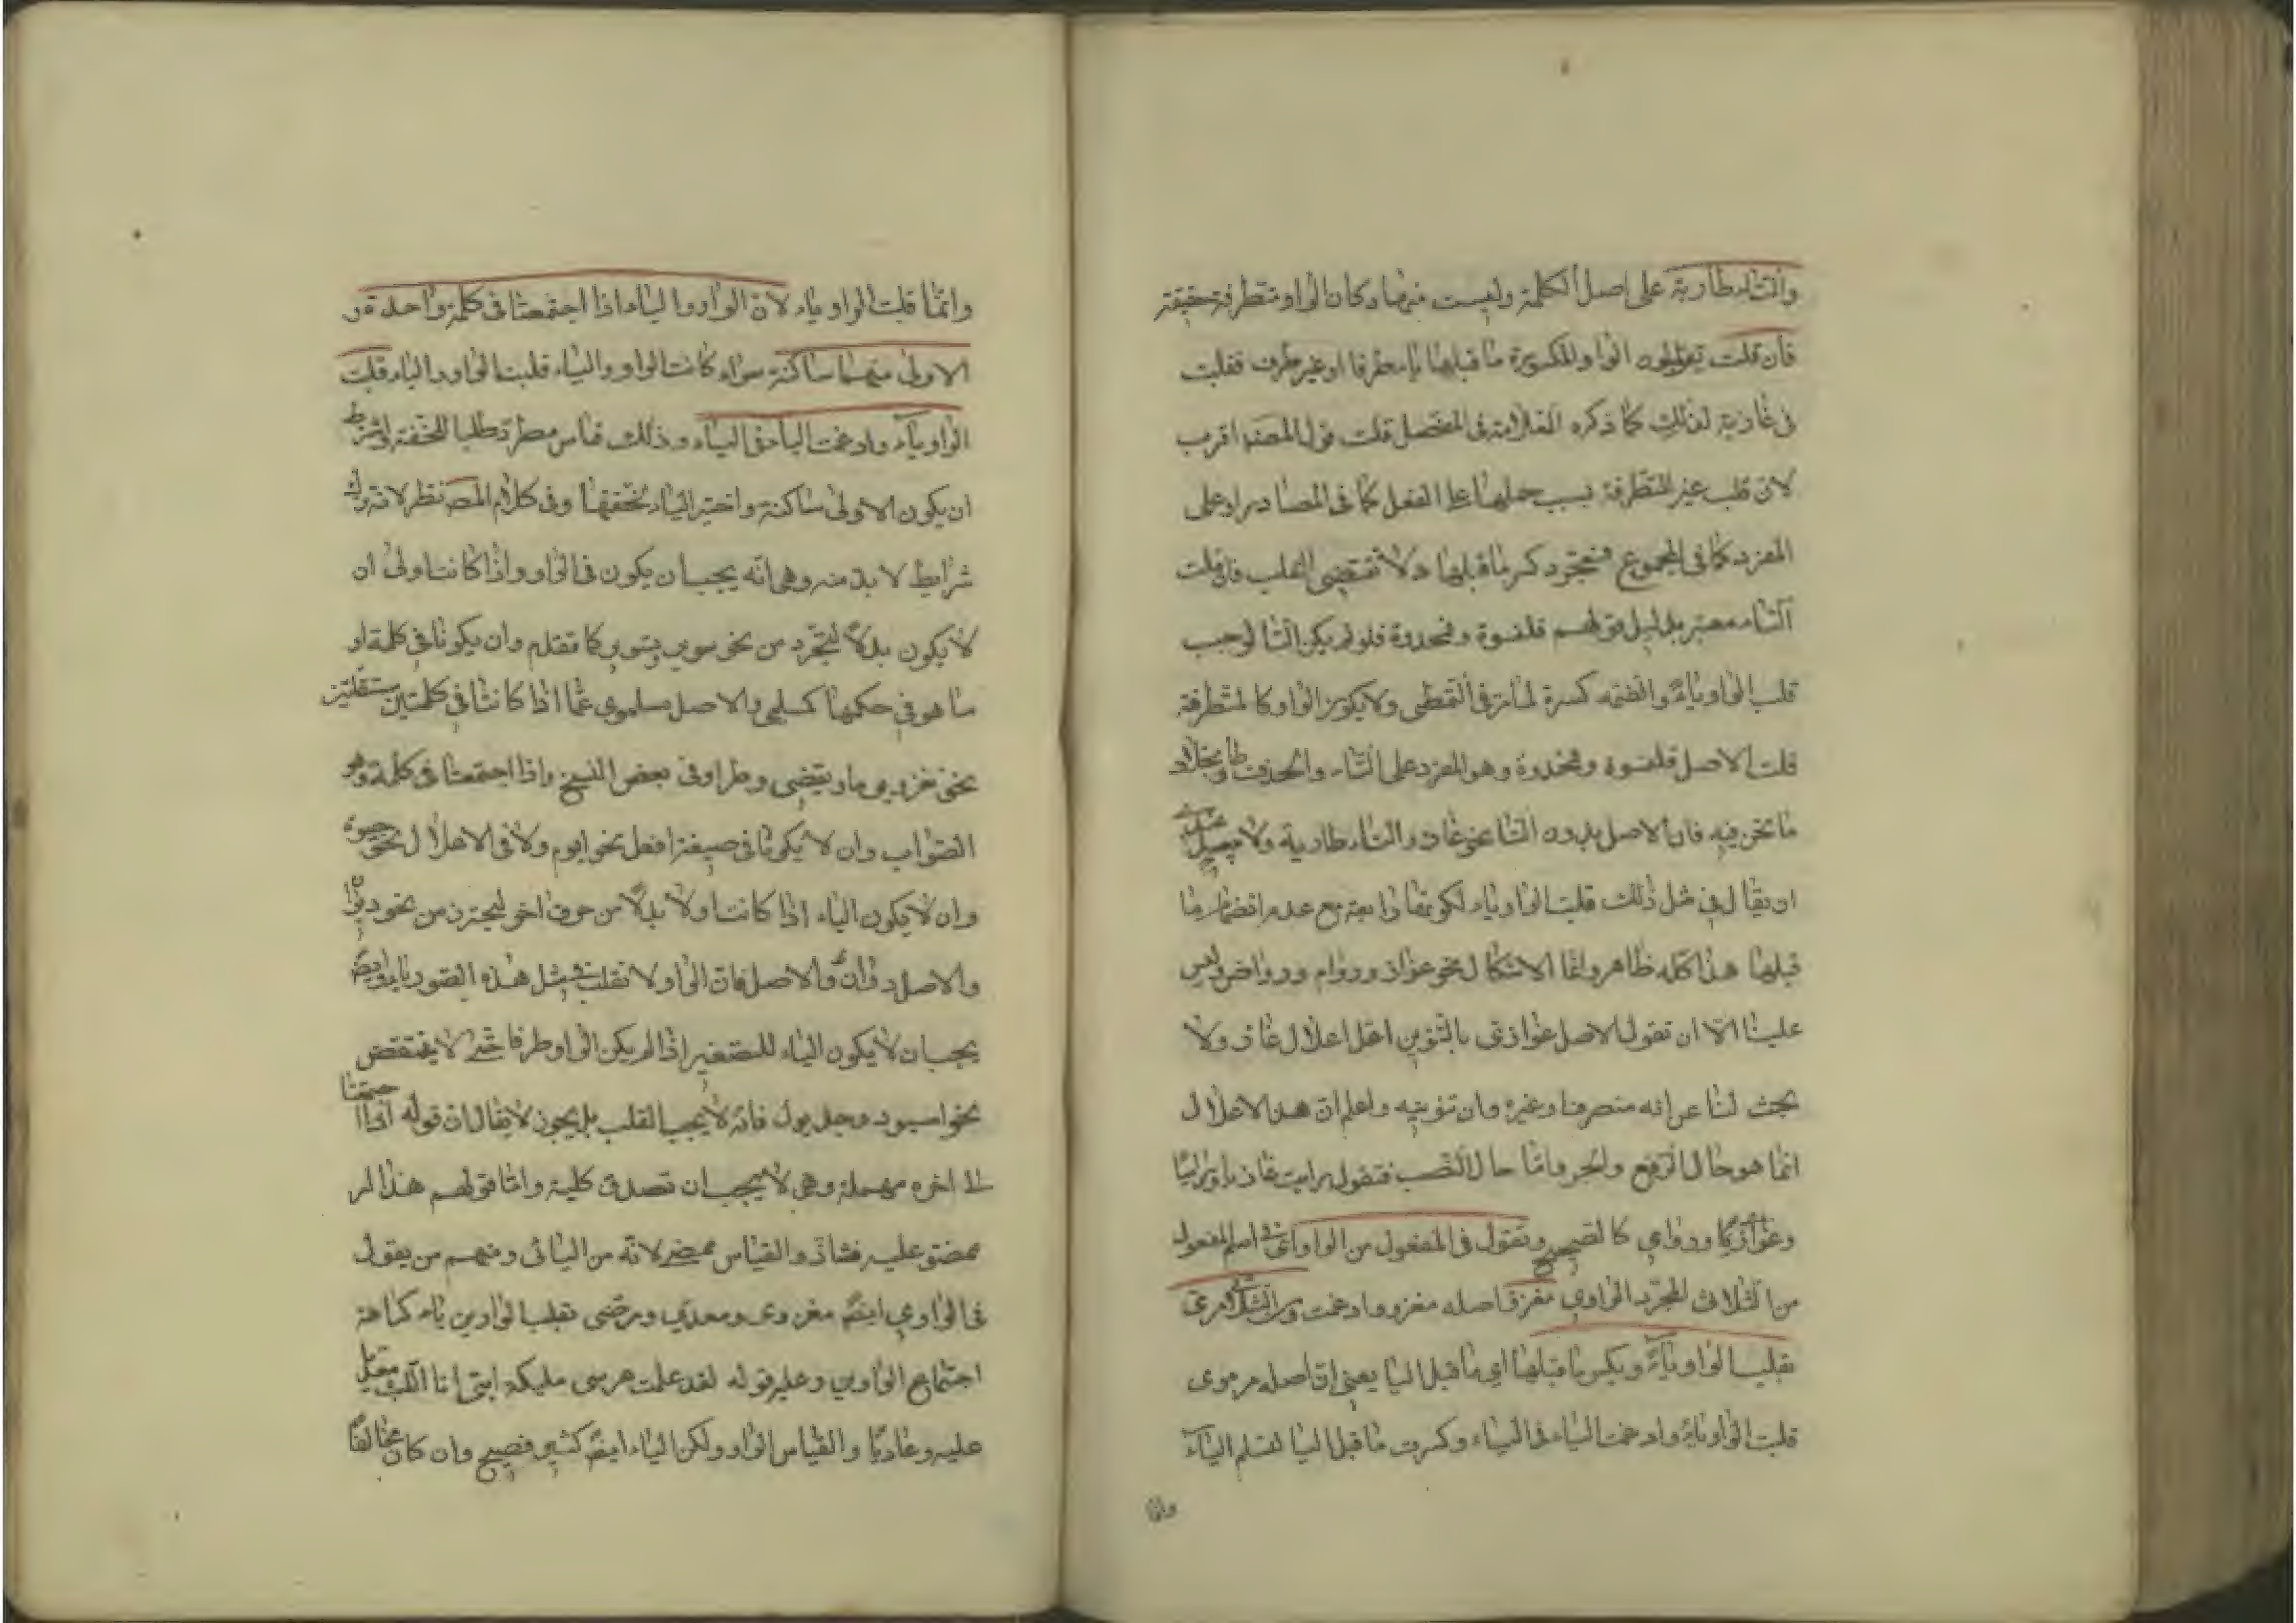 والتاء طارية على اصل الكلمة وليست منها فكان الواو متطرفة حقيقة
فان قلت تقلبون الواو المكسورة ما قبلها ياء طرفا او غير طرف فقلبت
فى غازية لذلك كما ذكره العلامة فى المفصل قلت قول المصنف اقرب
لان قلب غير المتطرفة بسبب حملها على الفعل كما فى المصادر او على
المفرد كما فى الجموع فمجرد كسر ما قبلها لا تقتضى القلب فان قلت
التاء معتبر بدليل قولهم قلنسوة وقمحدوة فلو لم يكن التا لوجب
قلب الواو ياء والضمة كسرة لما مر فى التمطى ولا يكون الواو كالمتطرفة
قلت الاصل قلنسوة وقمحدوة وهو المفرد على التاء والحذف طار بخلاف
ما نحن فيه فان الاصل بدون التا نحو غاز والتاء طارية ولا
ان يقال فى مثل ذلك قلبت الواو ياء لكونها رابعة مع عدم انضمام ما
قبلها هذا كله ظاهر وانما الاشكال نحو غواز ورواٍم ورواض وليس
علينا الا ان تقول الاصل غوازى بالتنوين اعل اعلال غاز ولا
بحث لنا عن انه منصرف او غيره وان تنوينه واعلم ان هذا الاعلال
انما هو حال الرفع والجر واما حال النصب فتقول رايت غازيا وراميا
وغوازى وروامى كالصحيح وتقول فى المفعول من الواو اى فى اسم المفعول
من الثلاثى المجرد الواوى مغزو اصله مغزوو ادغمت ومن اليائى مرمى
تقلب الواو ياء ويكسر ما قبلها اى ما قبل اليا يعنى ان اصله مرموى
قلبت الواو ياء وادغمت الياء فى الياء وكسرت ما قبل اليا لتسلم الياء
وانما
وانما قلبت الواو ياء لان الواو والياء اذا اجتمعتا فى كلمة واحدة و
الاولى منهما ساكنة سواء كانت الواو والياء قلبت الواو والياء قلبت
الواو ياء وادغمت الياء فى الياء وذلك قياس مطرد طلبا للخفة واشترط
ان يكون الاولى ساكنة واختير الياء لخفتها وفى كلام المصـ نظر لانه ترك
شرايط لا بد منه وهى انه يجب ان يكون فى الواو واذا كانت اولى ان
لا يكون بدلا ليتحرز من نحو سوير وتسوير كما تقدم وان يكونا فى كلمة او
ما هو فى حكمها كمسلمى والاصل مسلموى عما اذا كانتا فى كلمتين مستقلتين
نحو يغزو يوما ويقضى وطرا وفى بعض النسخ واذا اجتمعتا فى كلمة وهو
الصواب وان لا يكونا فى صيغة افعل نحو ايوم ولا فى الاعلال نحو حيوة
وان لا يكون الياء اذا كانت اولا بدلا من حرف اخر ليحترز من نحو ديوان
والاصل دوان والاصل فان الواو لا تقلب فى مثل هذه الصور ياء وايضا
يجب ان لا يكون الياء للتصغير اذا لم يكن الواو طرفا حتى لا ينتقض
نحو اسيود وجديول فانه لا يجب القلب بل يجوز لا يقال ان قوله اذا اجتمعتا
الى اخره مهملة وهى لا يجب ان تصدق كلية واما قولهم هذا امر
ممضو عليه فشاذ والقياس ممضى لانه من اليائى ومنهم من يقول
فى الواوى ايضا مغزوى ومعدى ومرضى بقلب الواوين ياء كراهة
اجتماع الواوين وعليه قوله لقد علمت عرسى مليكة اننى انا الليث معديا
عليه وعاديا والقياس الواو ولكن الياء ايضا كثير فصيح وان كان مخالفا